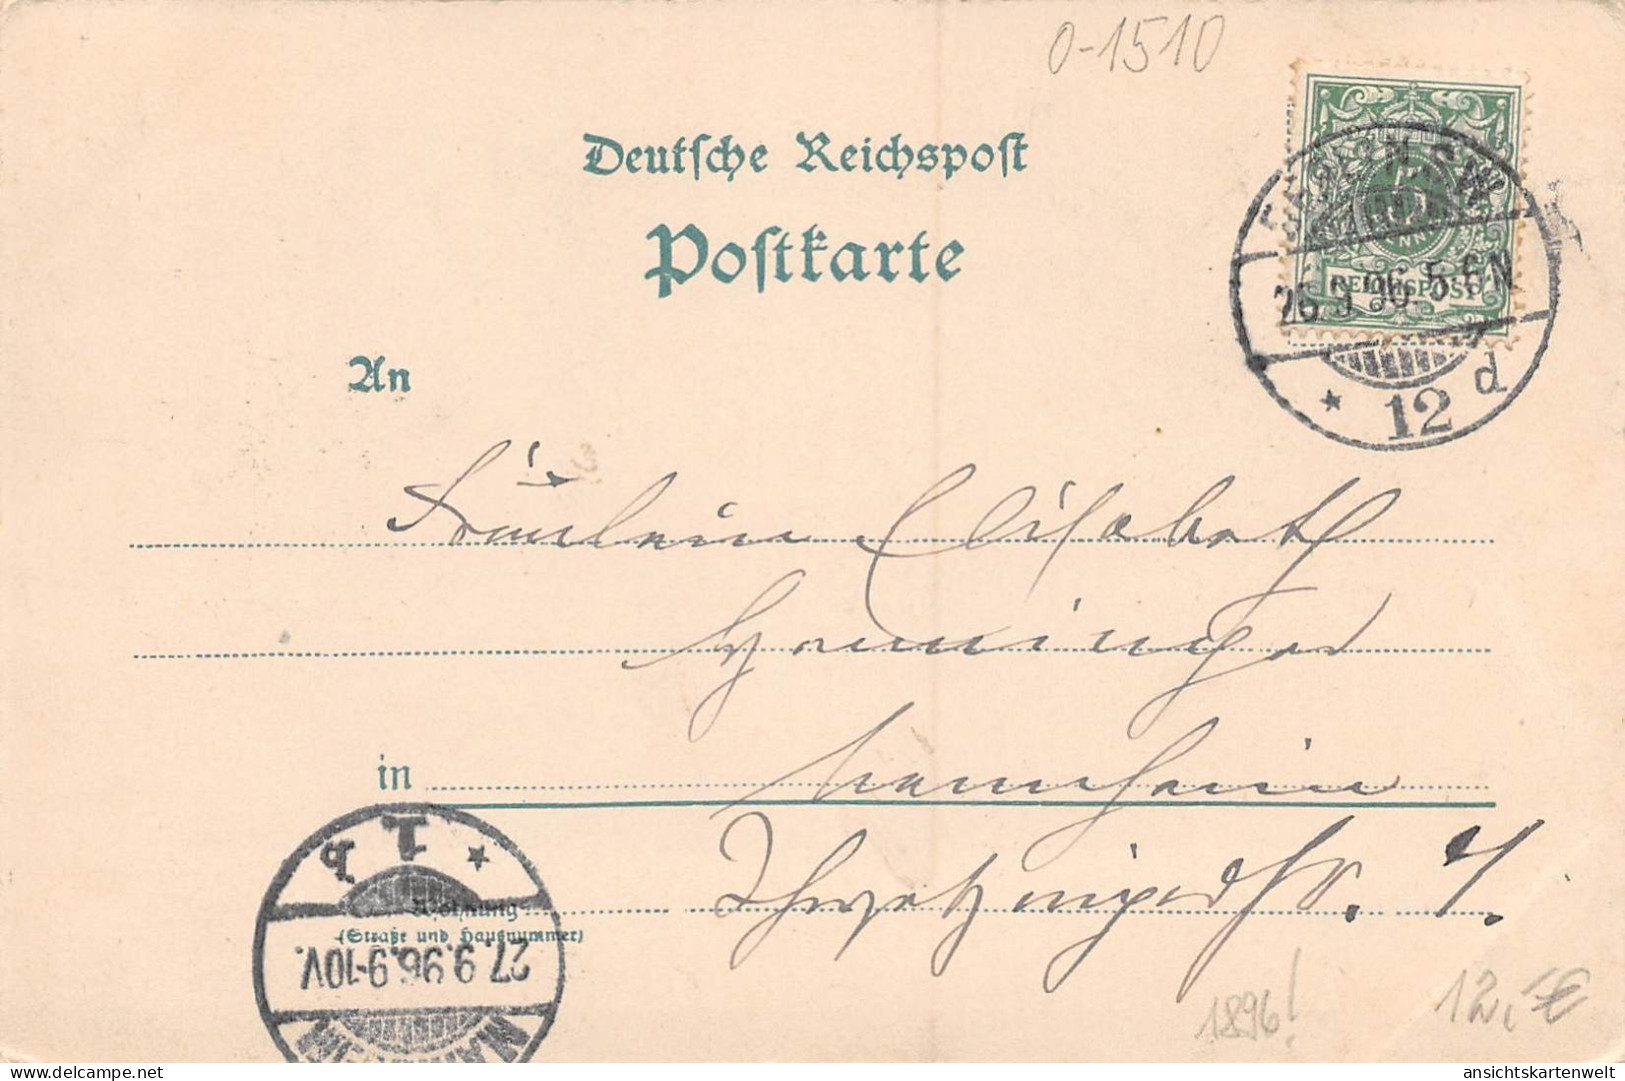 0-1510
Deutsche Reichspost
Postkarte
BERLIN S.W.
26.9.96. 5-6N
* 12 d
REICHSPOST
An
Fräulein Elisabeth
in Mannheim
Schwetzingerstr. 7.
Wohnung
(Straße und Hausnummer)
* 1 b
27.9.96. 9-10V.
MANNHEIM
1896!
12,-€
ansichtskartenwelt